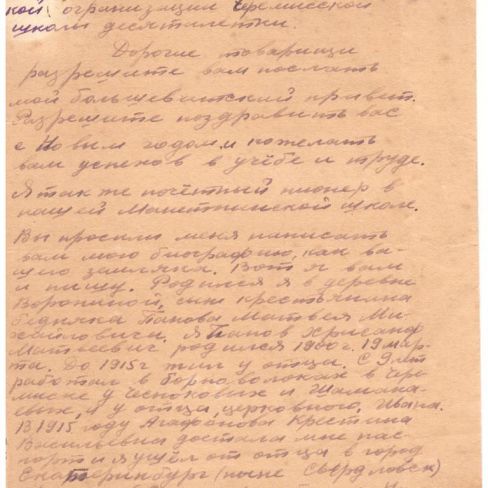 кой огранизации Черемисской
школы десятилетки.
Дорогие товарищи
разрешите вам послать
мой большевитский привет.
Разрешите поздравить вас
с Новым годом и пожелать
вам успехов в учёбе и труде.
Я так же почётный пионер в
нашей Манетнинской школе.
Вы просили меня написать
вам мою биографию, как ва-
шего земляка. Вот я вам
и пишу. Родился я в деревне
Ворониной, сын крестьянина
бедняка Панова Матвея Ми-
хайловича. Я Панов Хрисанф
Матвеевич родился 1900 г. 19 мар-
та. До 1915 г жил у отца. С 9 лет
работал в борноволоках в Чере-
миске у Чесноковых и Шамана-
евых, и у отца, церковного, Ивана.
В 1915 году Агафонова Крестина
Васильевна достала мне пас-
порт и я ушёл от отца в город
Екатеринбург (ныне Свердловск)